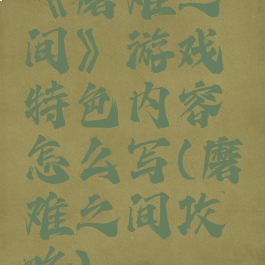 《磨难之
间》游戏
特色内容
怎么写(磨
难之间攻
略)